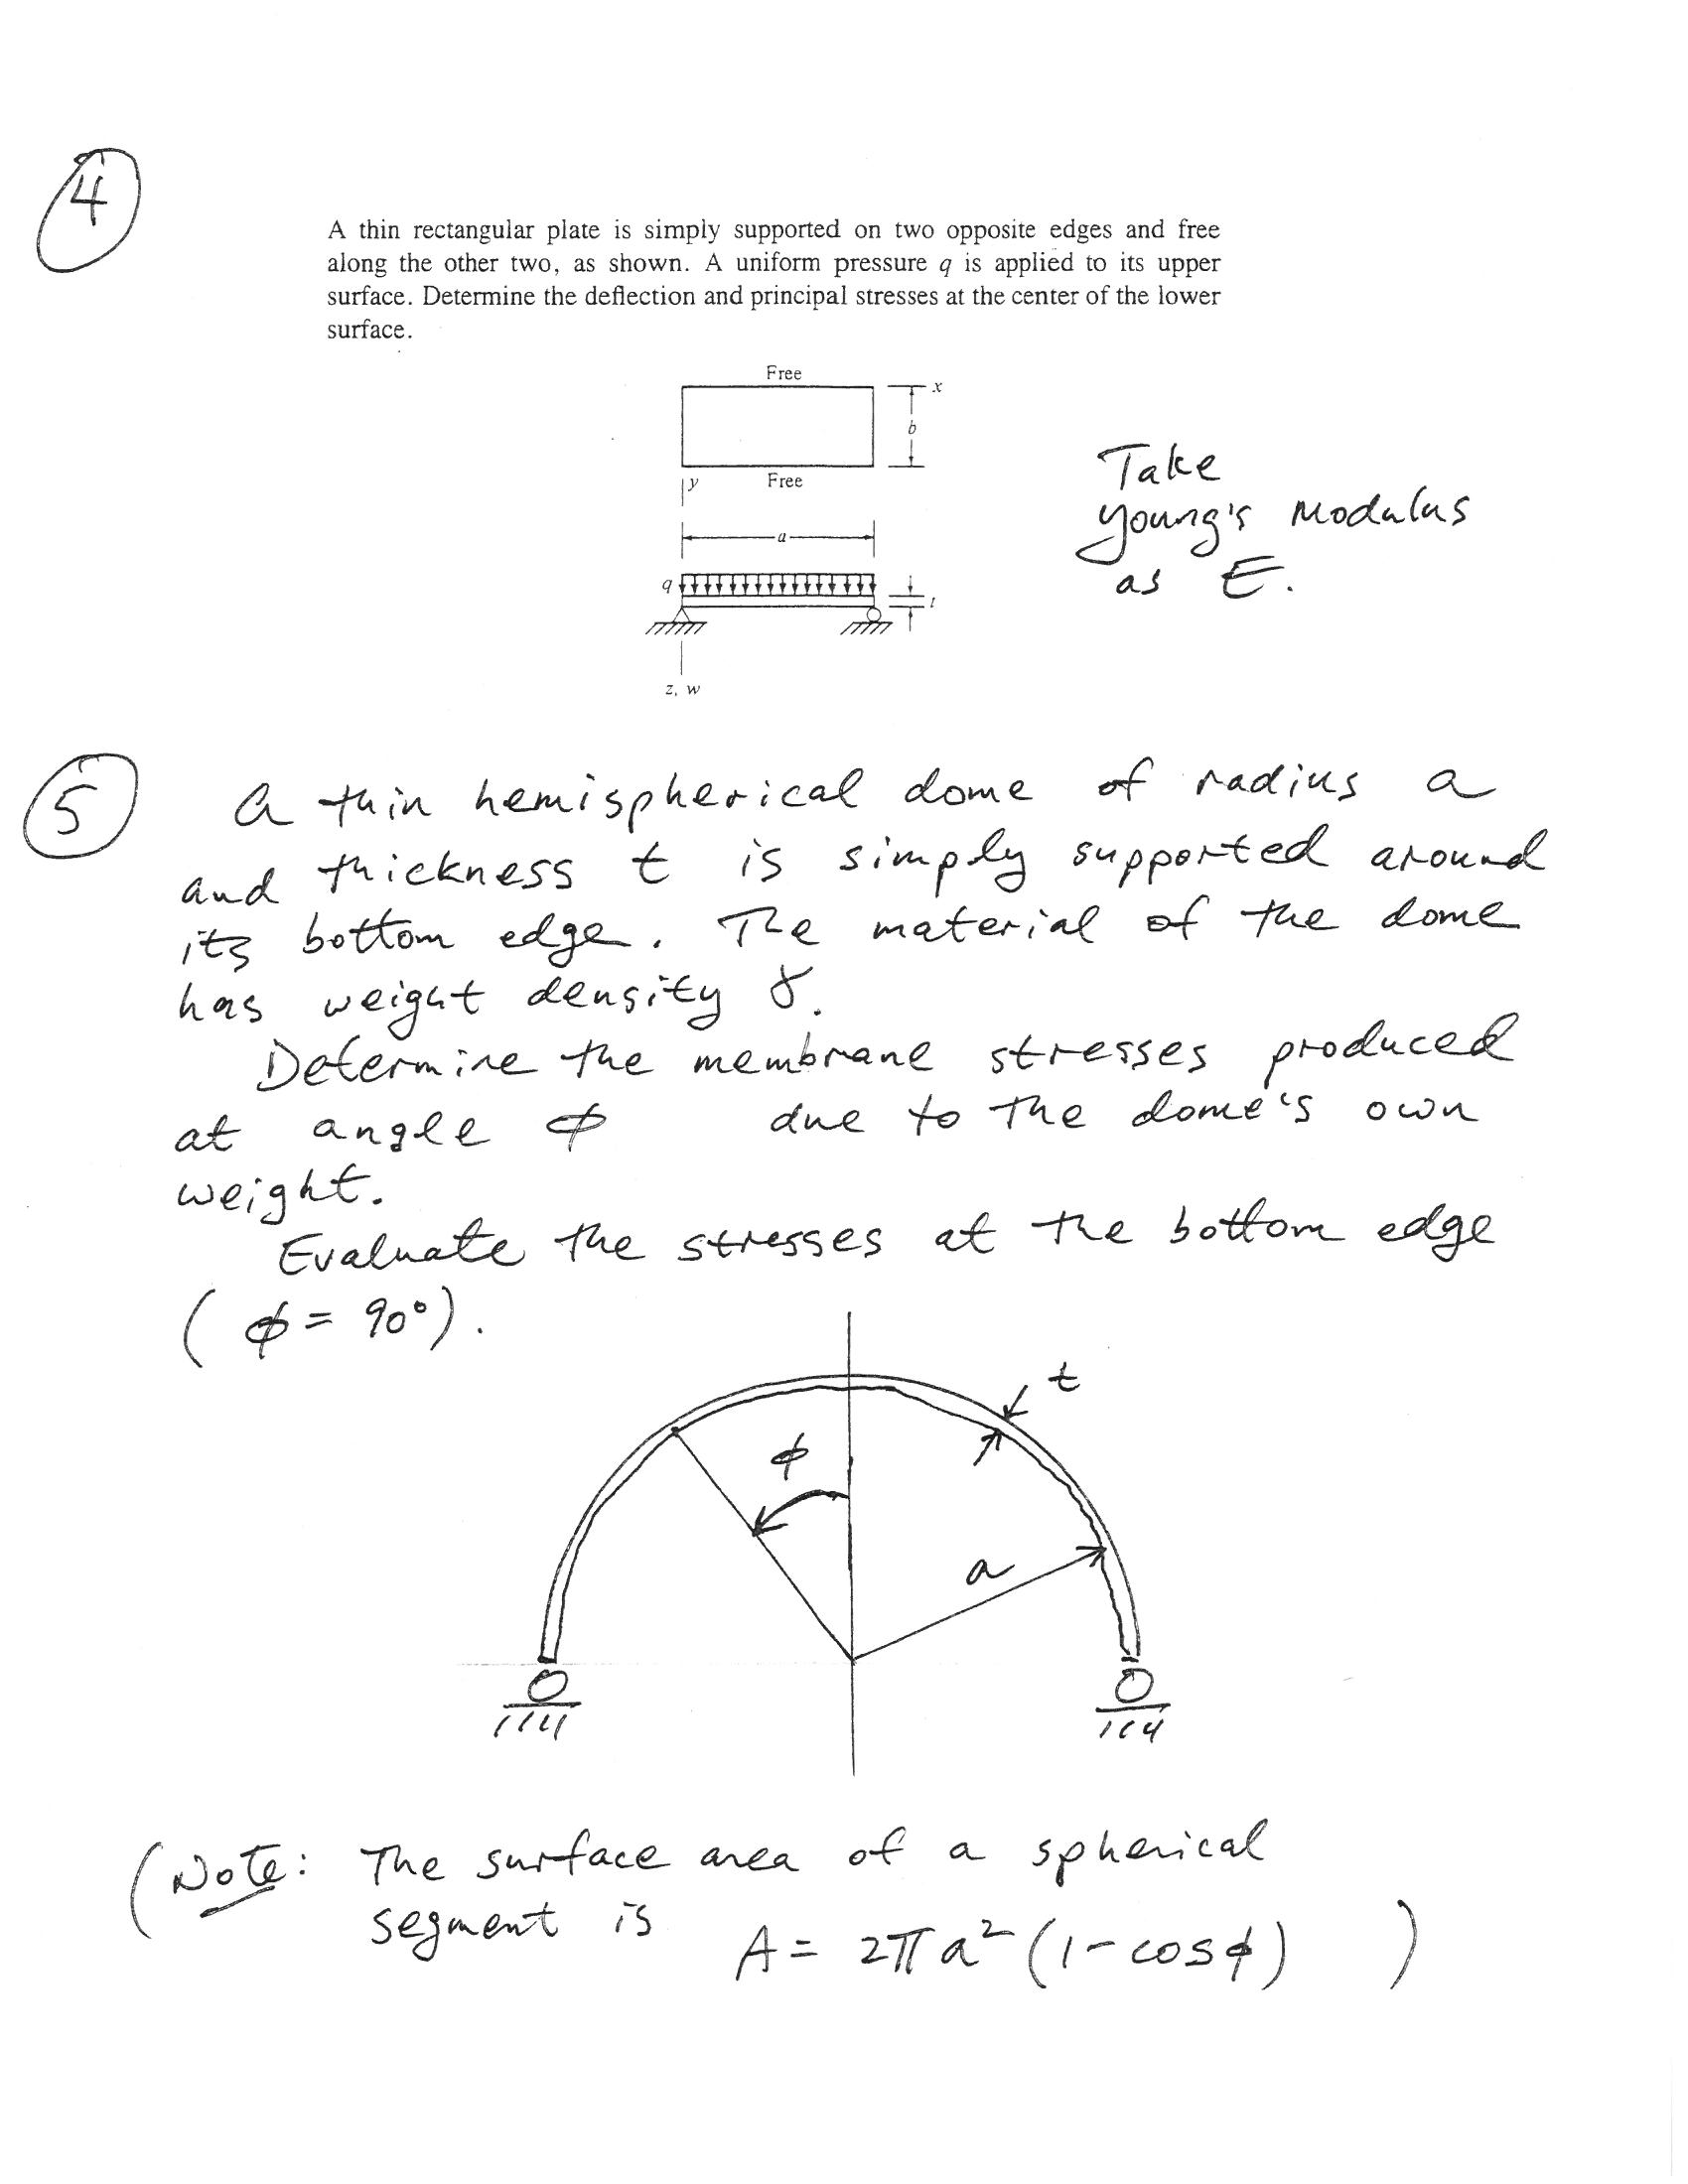 4
A thin rectangular plate is simply supported on two opposite edges and free
along the other two, as shown. A uniform pressure q is applied to its upper
surface. Determine the deflection and principal stresses at the center of the lower
surface.
Free
x
b
y
Free
a
q
t
z, w
Take
Young's Modulus
as E.
5
A thin hemispherical dome of radius a
and thickness t is simply supported around
its bottom edge. The material of the dome
has weight density γ.
Determine the membrane stresses produced
at angle ϕ due to the dome's own
weight.
Evaluate the stresses at the bottom edge
( ϕ = 90° ).
t
ϕ
a
(Note: The surface area of a spherical
segment is A = 2πa²(1-cosϕ) )